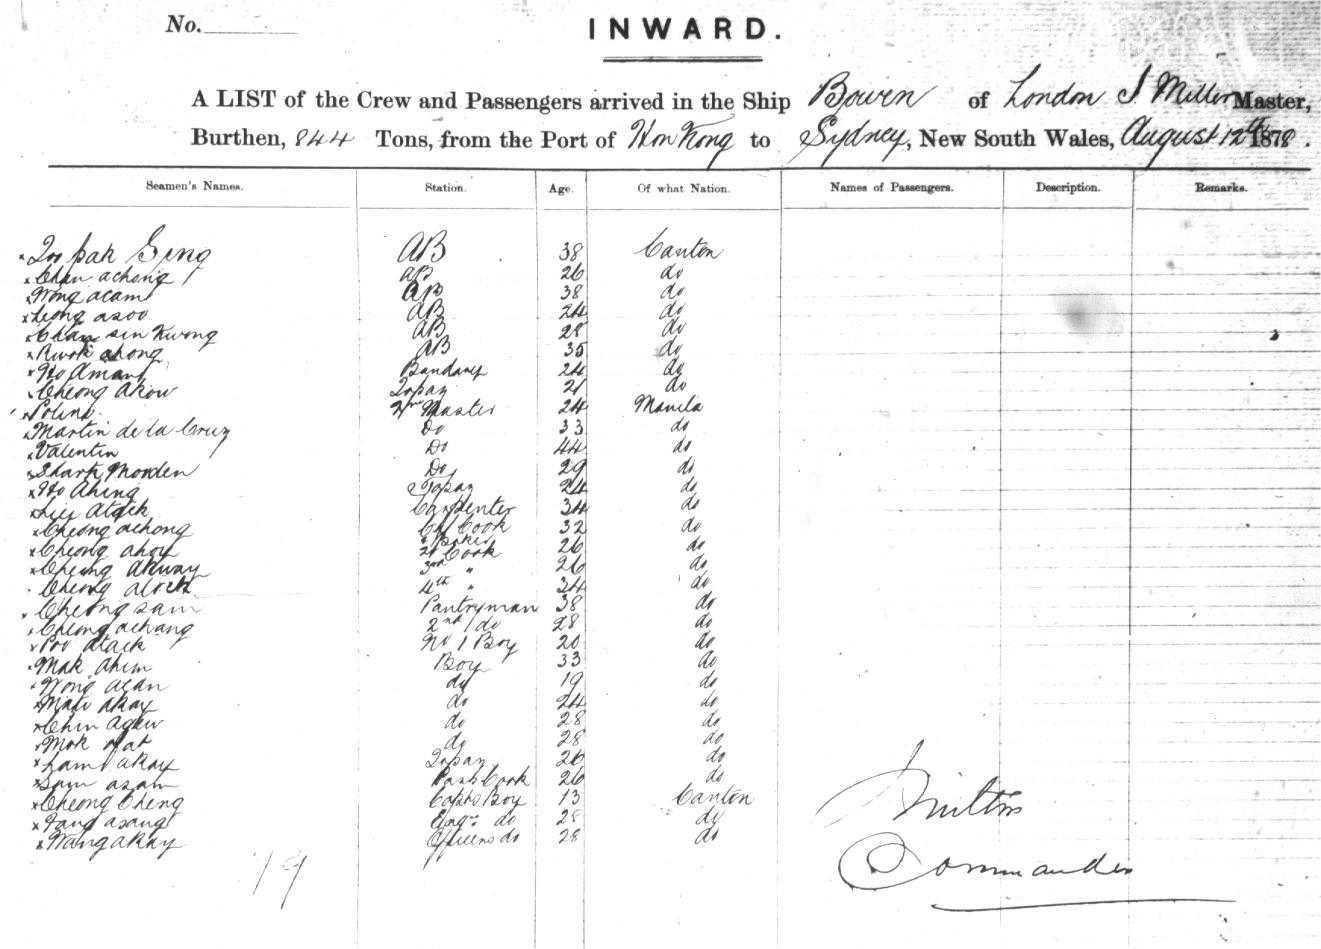 No.
INWARD.
A LIST of the Crew and Passengers arrived in the Ship Bowen of London J. Miller Master,
Burthen, 844 Tons, from the Port of Hon Kong to Sydney, New South Wales, August 12th 1878.
Seamen's Names. Station. Age. Of what Nation. Names of Passengers. Description. Remarks.
AB 38 Canton
Chan achong AB 26 do
Wong acam AB 38 do
Leong asoo AB 24 do
Chan sin Kwong AB 28 do
Kwok ahong AB 35 do
Ho Amant 24 do
Cheong Akow 21 do
Master 24 Manila
Martin de la Cruz Do 33 do
Valentin Do 44 do
Do 29 do
Ho Ahing 24 do
Carpenter 34 do
Cheong achong Cook 32 do
Cheong ahoy & Baker 26 do
2d Cook
Cheong akway 3rd " 26 do
Cheong 4th " 34 do
Cheong sam Pantryman 38 do
Cheong achang 2nd do 28 do
Poo atack No 1 Boy 20 do
Mak ahim Boy 33 do
Wong do 19 do
akay do 24 do
Chin do 28 do
Mok do 28 do
Lam akay 26 do
Sam asam Cook 26 do
Cheong Cheng Capts Boy 13 Canton
Fang asang Engrs do 28 do
Wang akay Officers do 28 do
Commander
19